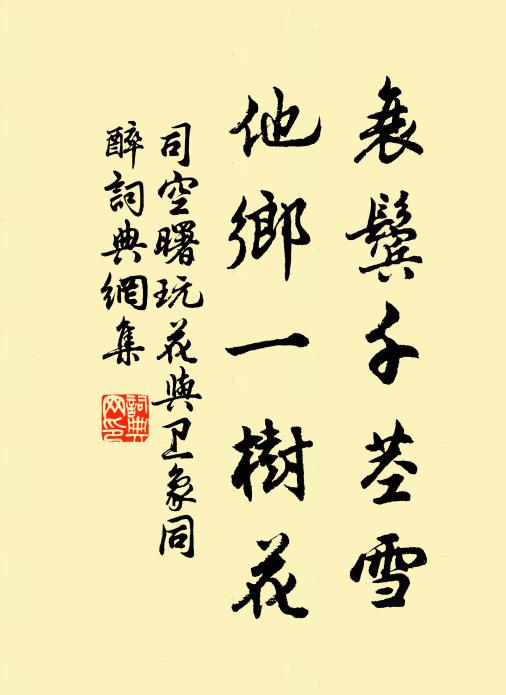 衰鬢千莖雪
他鄉一樹花
司空曙玩花與卫象同
醉詞典網集
詞典
网印